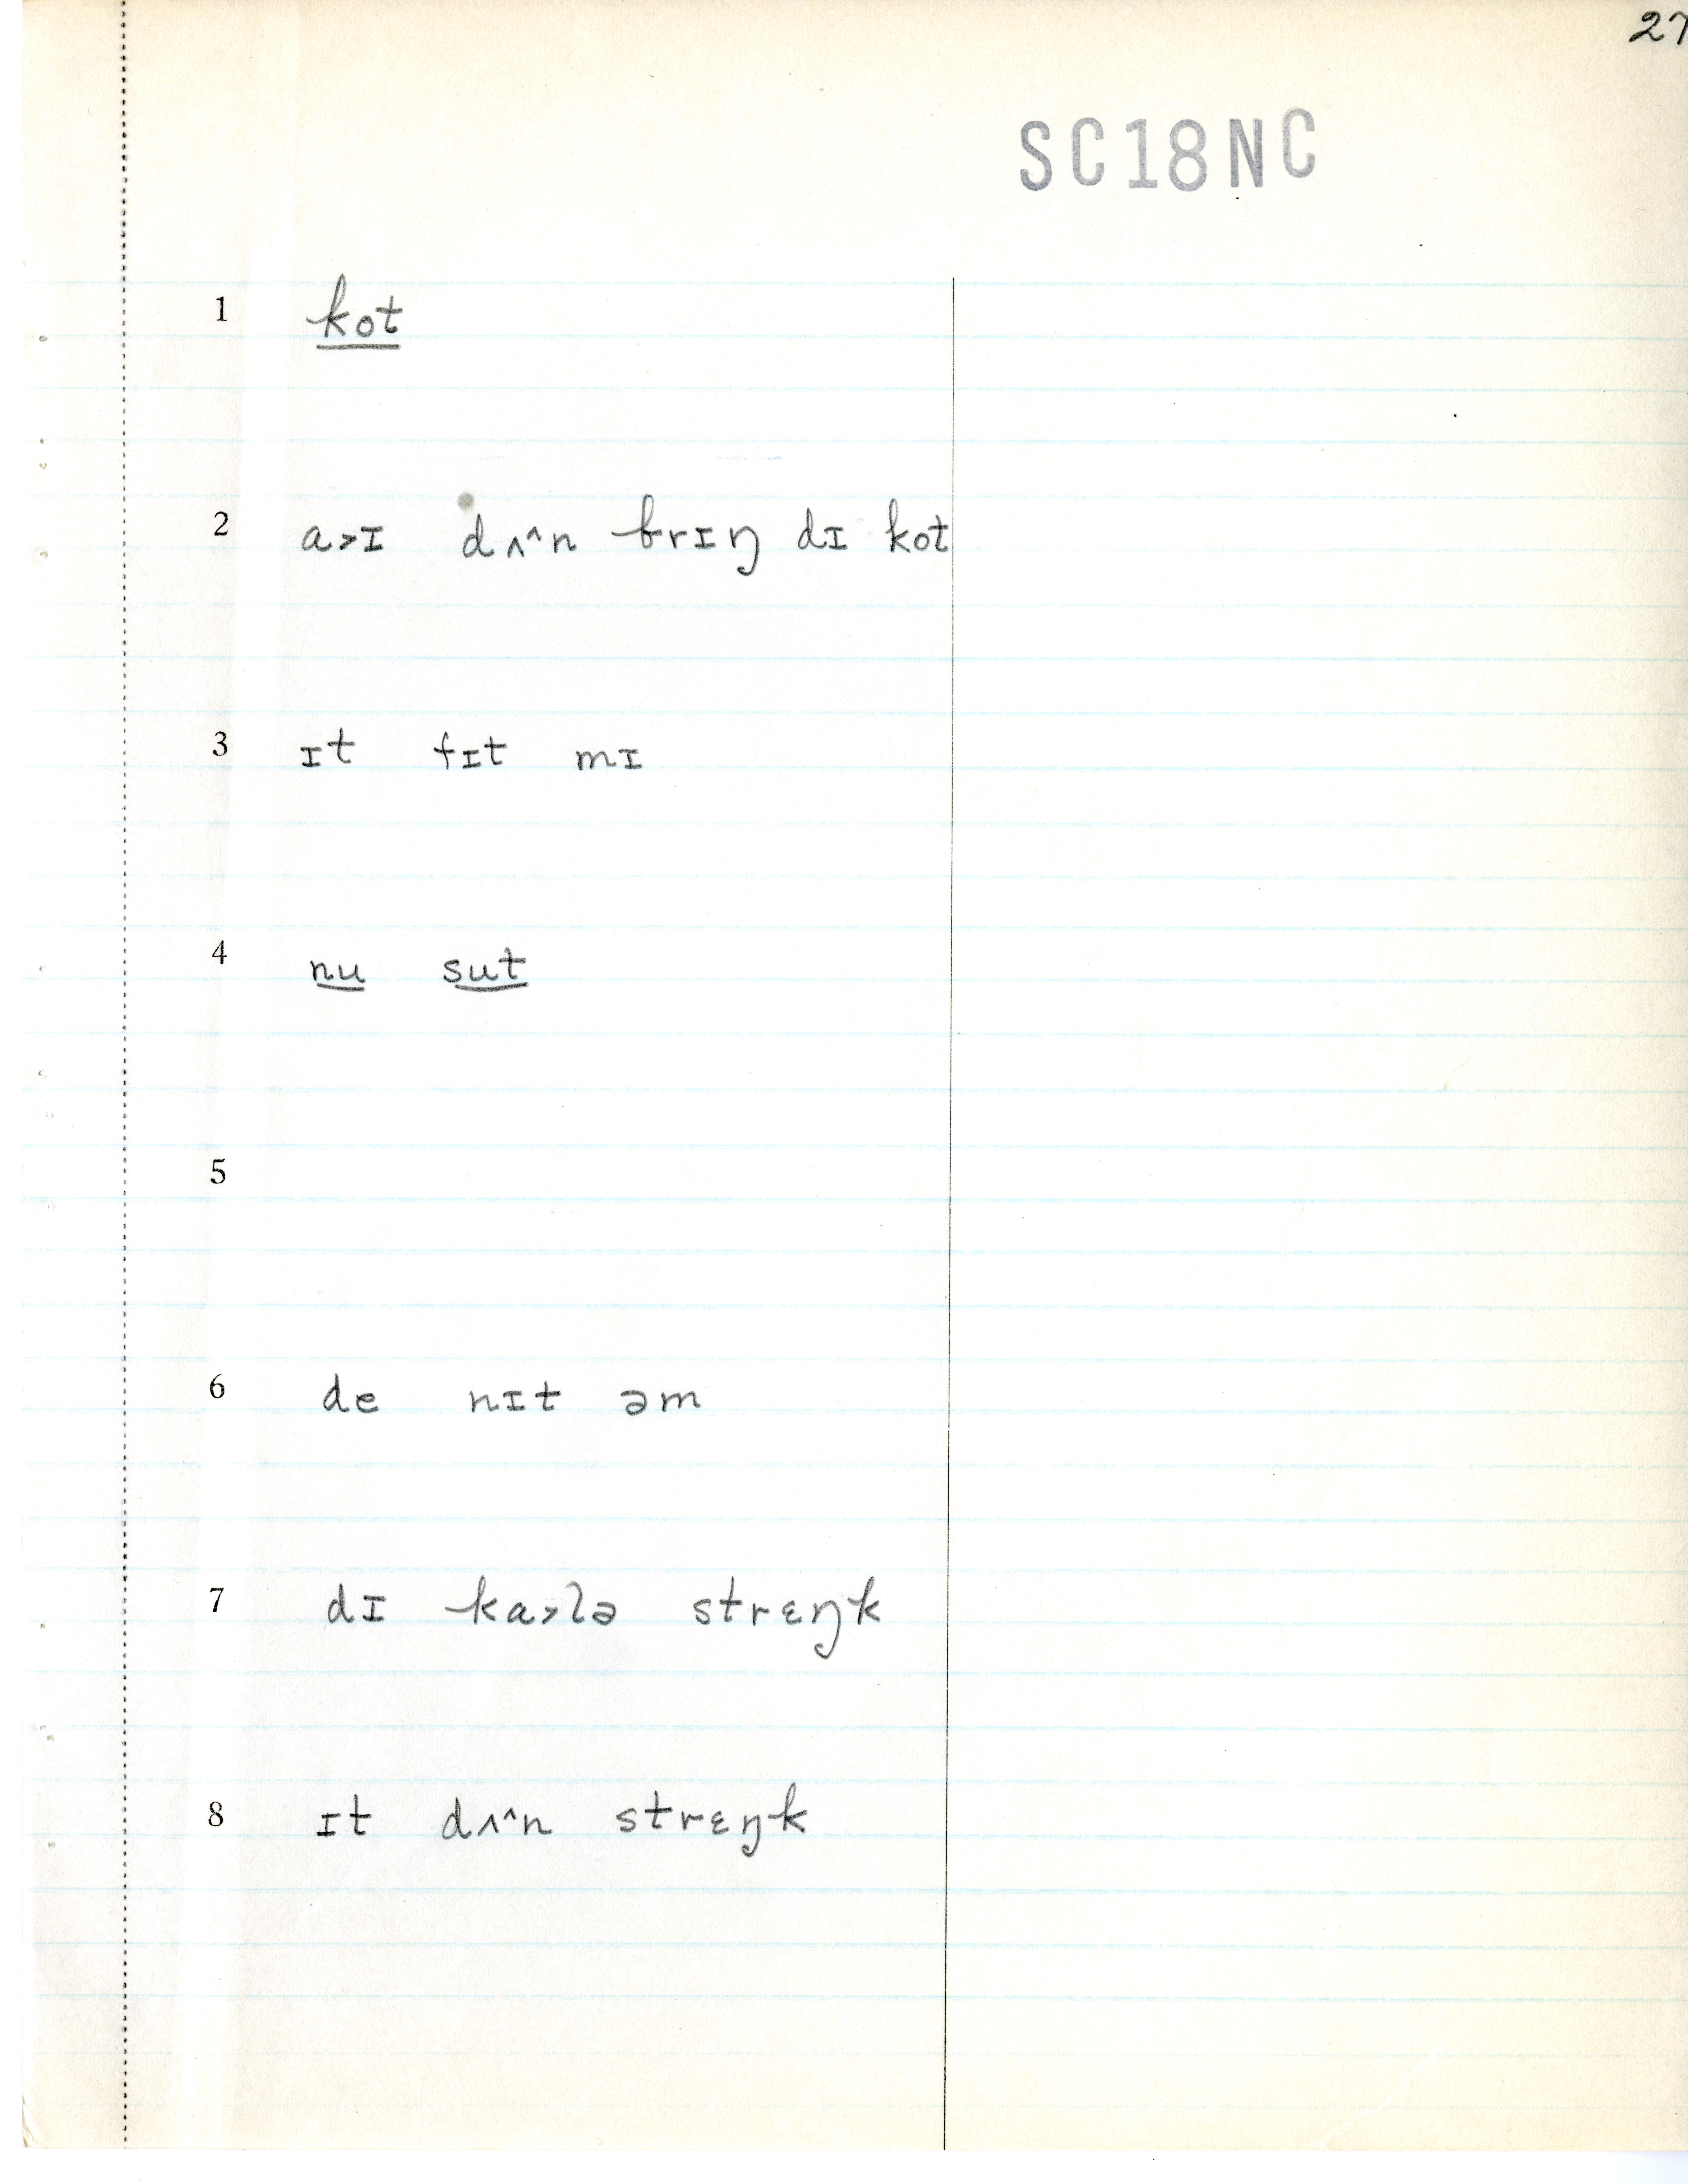 27
SC18NC
1 kot
2 a>ɪ dʌ^n brɪŋ dɪ kot
3 ɪt fɪt mɪ
4 nu sut
5
6 de nɪt əm
7 dɪ ka>lə strɛŋk
8 ɪt dʌ^n strɛŋk